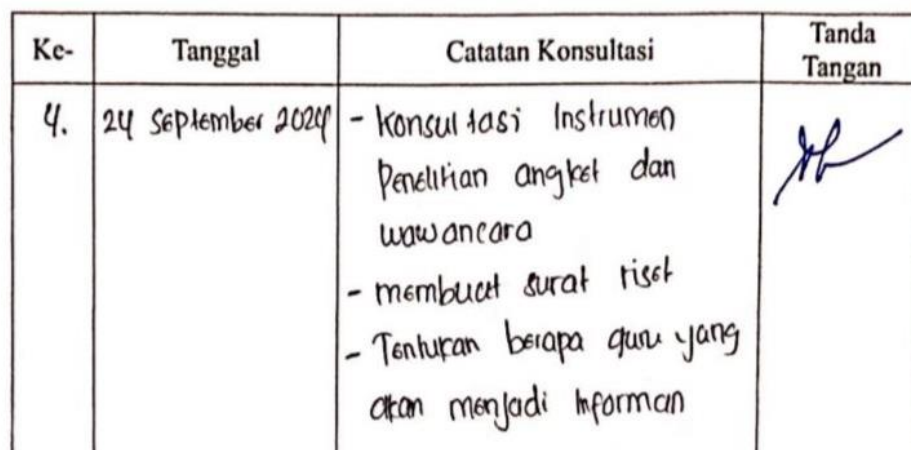 Ke- Tanggal Catatan Konsultasi Tanda Tangan
4. 24 September 2024 - Konsultasi Instrumen
Penelitian angket dan
wawancara
- membuat surat riset
- Tentukan berapa guru yang
akan menjadi Informan